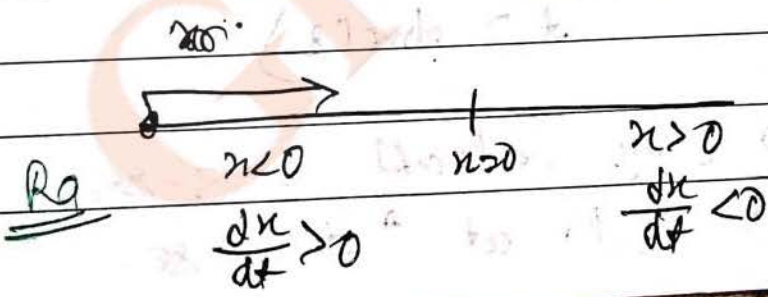 x<0 x=0 x>0
Rq
dx/dt >0 dx/dt <0